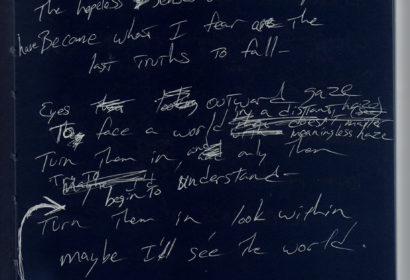 The hopeless
have Become what I fear are the
last Truths to fall-
Eyes outward gaze
in a distant, hazed
To face a world
meaningless haze
Turn Them in, and only Them
Try To
begin to understand-
Turn Them in look within
maybe I'll see the world.